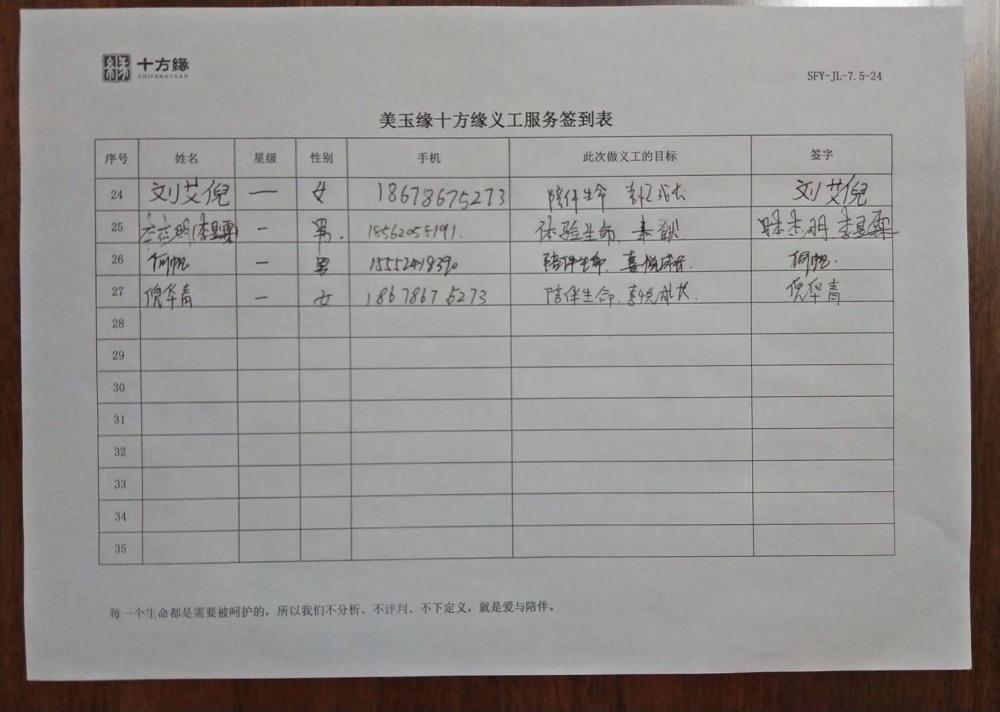 缘 十方缘
SHIFANGYUAN
SFY-JL-7.5-24
美玉缘十方缘义工服务签到表
序号 姓名 星级 性别 手机 此次做义工的目标 签字
24 刘艾倪 一 女 18678675273 陪伴生命 喜悦成长 刘艾倪
25 一 男. 体验生命、奉献
26 何帆 一 男 15552418390 陪伴生命、喜悦成长. 何帆.
27 倪华青 一 女 18678675273 陪伴生命、喜悦成长. 倪华青
28
29
30
31
32
33
34
35
每一个生命都是需要被呵护的，所以我们不分析、不评判、不下定义，就是爱与陪伴。